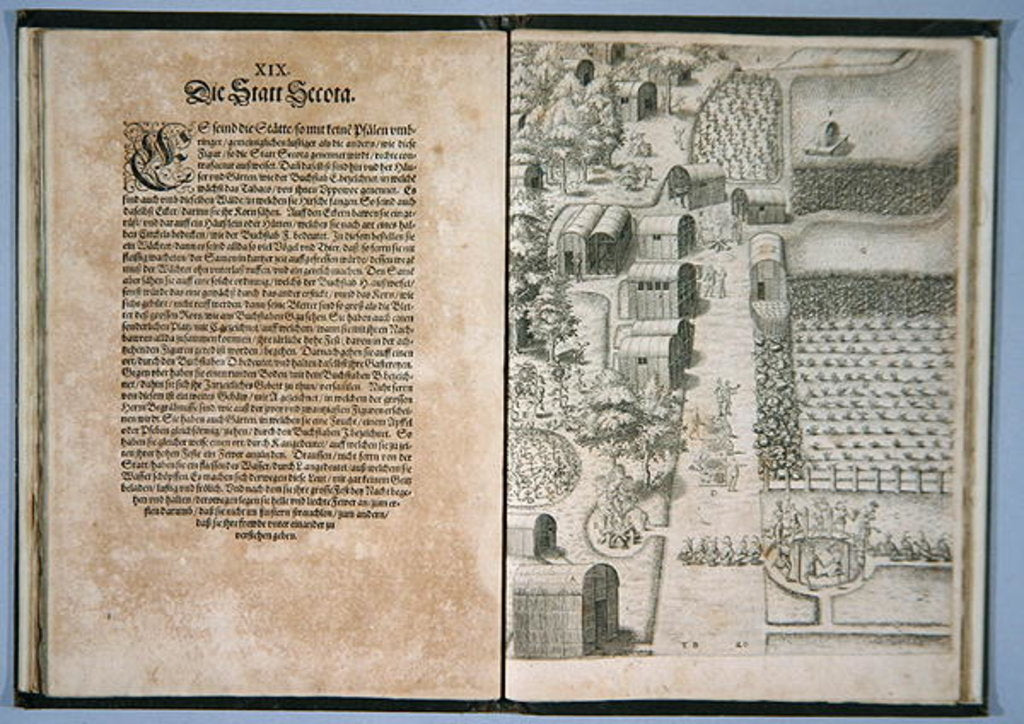 XIX.
Die Statt Secota.
ES seind die Stätte/ so mit keinē Pfälen vmb-
ringet/ gemeiniglichen lustiger als die andern/ wie diese
Figur/ so die Statt Secota genennet wirdt/ rechte con-
auffweiset. Dañ daselbst seind hin vnd her Häu-
ser vnd Gärten/ wie der Buchstab E bezeichnet, in welchē
wächst das Tabaco/ von jhnen Vppowoc genennet. Es
sind auch vmb dieselben Wälde/ in welchen sie Hirsche fangen. So seind auch
daselbst Ecker/ darinn sie jhr Korn sähen. Auff den Eckern bawen sie ein ge-
rüst/ vnd darauff ein Häußlein oder Hütten/ welches sie nach art eines hal-
ben Circkels bedecken/ wie der Buchstab F. bedeutet. In diesem bestellen sie
ein Wächter/ dann es seind allda so viel Vögel vnd Thier, daß/ so ferrn sie nit
fleissig wachetē/ der Samen in kurtzer zeit auffgefressen würde/ dessen wegē
muß der Wächter ohn vnterlaß ruffen/ vnd ein gereusch machen. Den Samē
aber sähen sie auff eine solche ordnung/ welche der Buchstab H. außweiset/
sonst würde das eine gewächs durch das ander ersticket/ vnnd das Korn/ wie
sichs gebürt/ nicht reiff werden/ dann seine Bletter sind so groß als die Blet-
ter deß grossen Rors/ wie am Buchstaben G zu sehen. Sie haben auch einen
sonderlichen Platz/ mit C gezeichnet/ auff welchem/ wann sie mit jhren Nach-
bawren allda zusammen kommen/ jhre järliche hohe Fest/ davon in der ach-
zehenden Figuren geredt ist worden/ begehen. Darnach gehen sie auff einen
ort/ durch den Buchstaben D bedeutet/ vnd halten daselbst jhre Gastereyen.
Gegen vber haben sie einen runden Boden/ mit dem Buchstaben B. bezeich-
net/ dahin sie sich jhr Järliches Gebett zu thun/ versamlen. Nicht ferrn
von diesem ist ein weites Gebäw/ mit A gezeichnet/ in welchem der grossen
Herrn Begräbnisse sind/ wie auß der zwey vnd zwantzigsten Figuren erschei-
nen wirdt. Sie haben auch Gärten/ in welchen sie eine Frucht/ einen Apffel
oder Pfeben gleichförmig/ zielen/ durch den Buchstaben I bezeichnet. So
haben sie gleicher weise einen ort/ durch K angedeutet/ auff welchem sie zu zei-
ten jhrer hohen Feste ein Fewer anzünden. Draussen/ nicht ferrn von der
Statt/ haben sie ein fliessendes Wasser/ durch L angedeutet/ auß welchem sie
Wasser schöpffen. Es machen sich derwegen diese Leut/ mit gar keinem Geitz
beladen/ lustig vnd frölich. Vnd nach dem sie jhre grosse Fest bey Nacht bege-
hen vnd halten/ derowegen legen sie helle vnd liechte Fewer an/ zum er-
sten darumb/ daß sie nicht im finstern strauchlen/ zum andern/
daß sie jhre frewde vnter einander zu
verstehen geben.